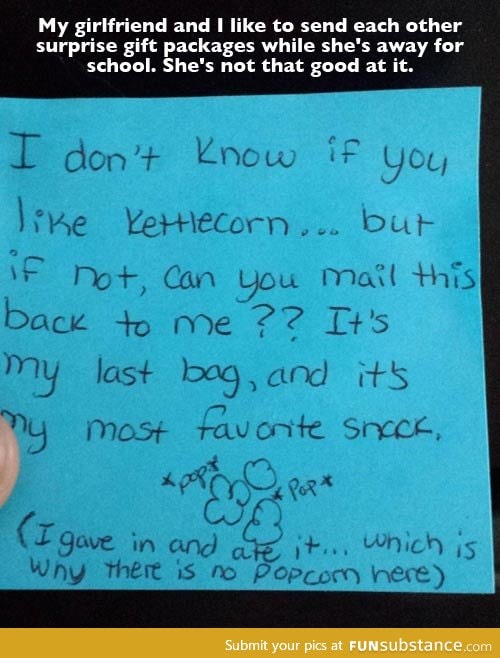 My girlfriend and I like to send each other
surprise gift packages while she's away for
school. She's not that good at it.
I don't know if you
like kettlecorn... but
if not, can you mail this
back to me ?? It's
my last bag, and it's
my most favorite snack.
*pop*
*pop*
(I gave in and ate it... which is
why there is no popcorn here)
Submit your pics at FUNsubstance.com